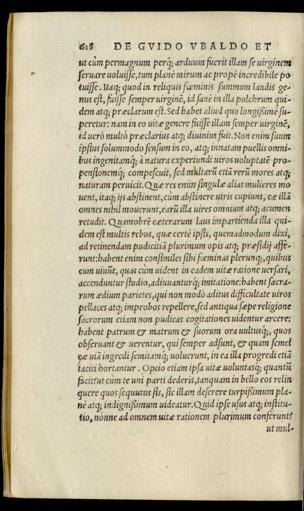 628 DE GVIDO VBALDO ET
ut cùm permagnum perq́; arduum fuerit illam se uirginem
seruare uoluisse, tum planè mirum ac propè incredibile po
tuisse. Itaq; quod in reliquis fœminis summum laudis ge-
nus est, fuisse semper uirginẽ, id sanè in illa pulchrum qui-
dem atq; præclarum est. Sed habet aliud quo longissimè su-
peretur: nam in eo uitæ genere fuisse illam semper uirginẽ,
id uerò multò præclarius atq; diuinius fuit. Non enim suum
ipsius solummodo sensum in eo, atq; innatam puellis omni-
bus ingenitamq́; à natura experiundi uiros uoluptatẽ pro-
pensionemq́; compescuit, sed multarũ etiã uerũ mores atq;
naturam peruicit. Quæ res enim singulæ alias mulieres mo
uent, itaq; ijs abstinent, cùm abstinere uiris cupiunt, eæ illã
omnes nihil mouerunt, earũ illa uires omnium atq; acumen
retudit. Quamobrẽ cæterarum laus impartienda illa qui-
dem est multis rebus, quæ certè ipsis, quemadmodum dixi,
ad retinendam pudicitiã plurimum opis atq; præsidij affe-
runt: habent enim consimiles sibi fœminas plerunq;, quibus
cum uiuũt, quas cùm uident in eadem uitæ ratione uersari,
accenduntur studio, adiuuanturq́; imitatione: habent sacra-
rum ædium parietes, qui non modò aditus difficultate uiros
pellaces atq; improbos repellere, sed antiqua sæpe religione
sacrorum etiam non pudicas cogitationes uidentur arcere:
habent patrum & matrum & suorum ora uultusq́;, quos
obseruant & uerentur, qui semper adsunt, & quam semel
eæ uiã ingredi semitamq́; uoluerunt, in ea illa progredi etiã
taciti hortantur. Optio etiam ipsa uitæ uoluntasq́; quantũ
facit? ut cùm te uni parti dederis, tanquam in bello eos relin
quere quos sequutus sis, sic illam deserere turpissimum pla-
nè atq; indignissimum uideatur. Quid ipse usus atq; institu-
tio, nonne ad omnem uitæ rationem plurimum conferunt?
ut mul-